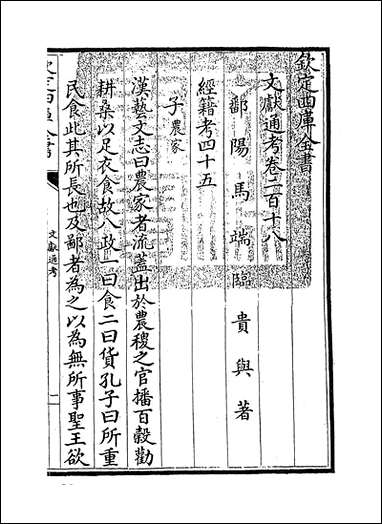 欽定四庫全書
文獻通考卷二百十八
鄱陽馬端臨貴與著
經籍考四十五
子農家
漢藝文志曰農家者流蓋出於農稷之官播百穀勸
耕桑以足衣食故八政一曰食二曰貨孔子曰所重
民食此其所長也及鄙者為之以為無所事聖王欲
欽定四庫全書
文獻通考
一